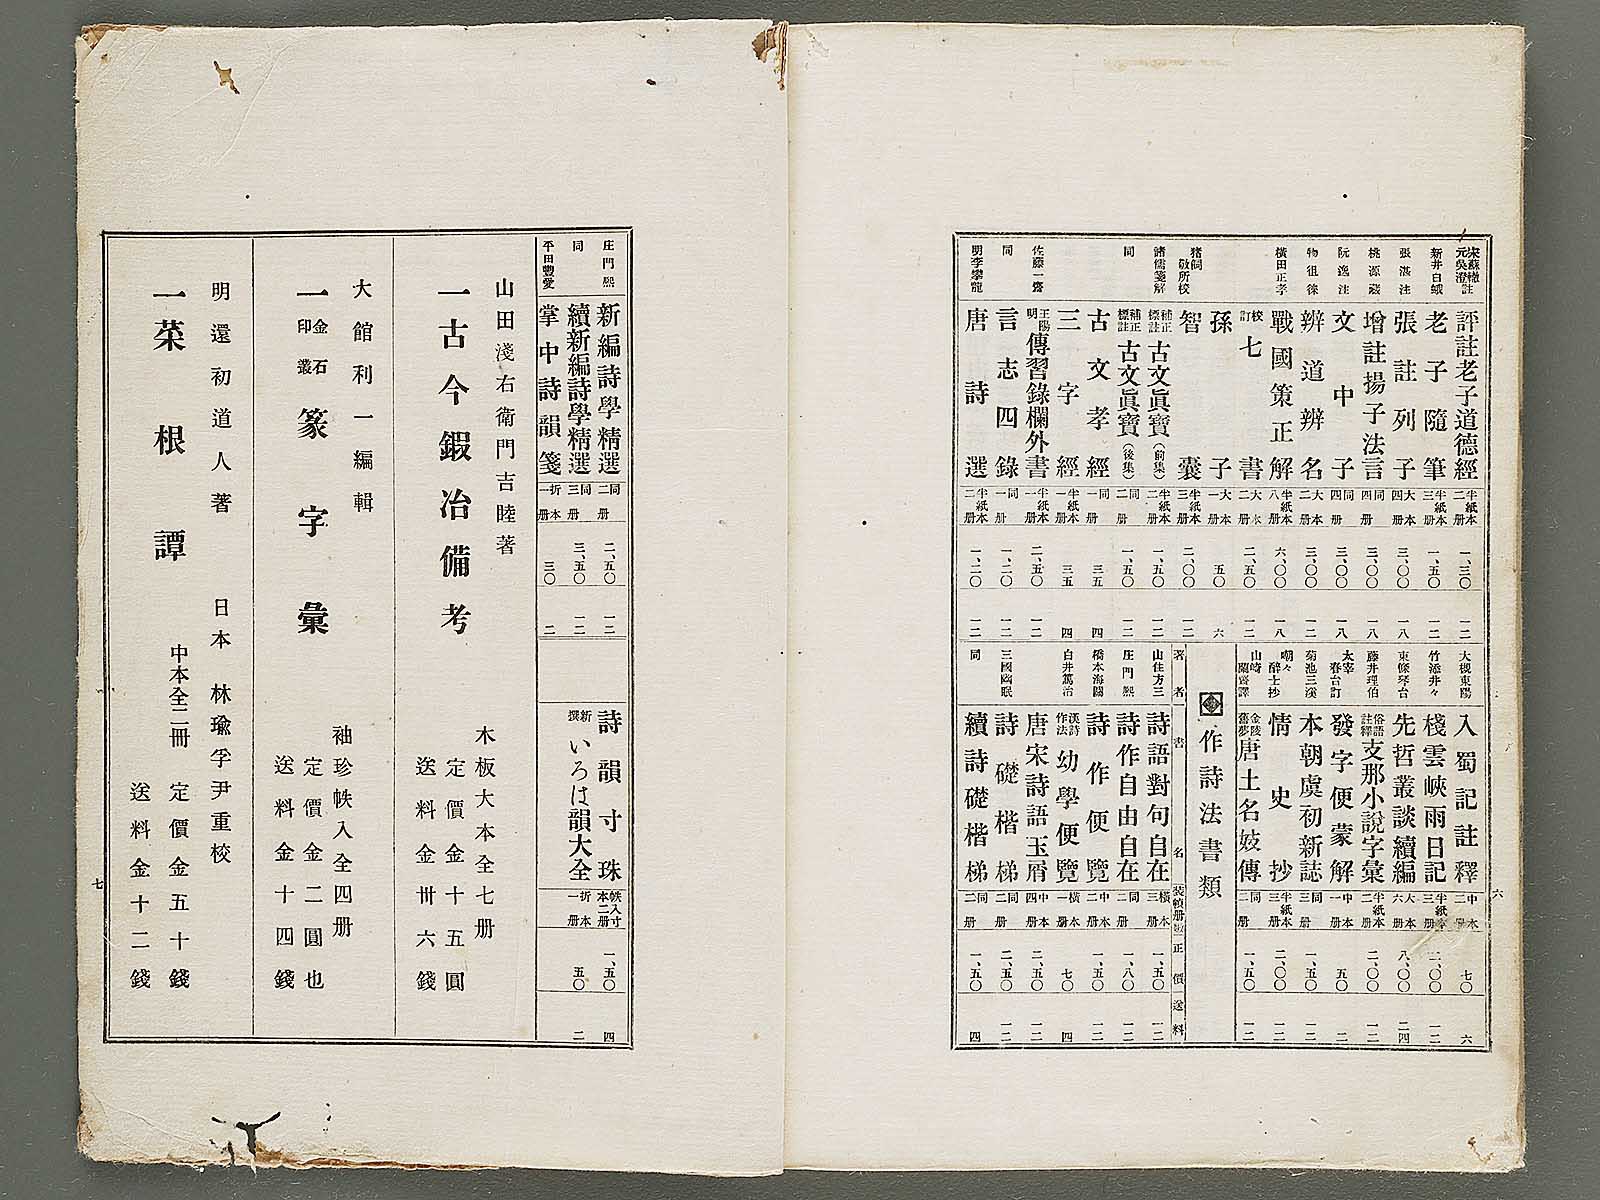 宋蘇轍註 元吳澄註 評註老子道德經 半紙本二册 一、三〇 一二
新井白蛾 老子隨筆 半紙本三册 一、五〇 一二
張湛注 張註列子 大本四册 三、〇〇 一八
桃源藏 增註揚子法言 同四册 三、〇〇 一八
阮逸注 文中子 同四册 三、〇〇 一八
物徂徠 辨道辨名 大本二册 三、〇〇 一二
橫田正孝 戰國策正解 半紙本八册 六、〇〇 一八
校訂七書 大本二册 二、五〇 一二
孫子 大本一册 五〇 六
猪飼敬所校 智囊 半紙本三册 二、〇〇 一二
諸儒箋解 補正標註古文眞寶(前集) 半紙本二册 一、五〇 一二
同 補正標註古文眞寶(後集) 同二册 一、五〇 一二
古文孝經 同一册 三五 四
三字經 半紙本一册 三五 四
佐藤一齋 王陽明傳習錄欄外書 半紙本一册 二、五〇 一二
同 言志四錄 同一册 一、二〇 一二
明李攀龍 唐詩選 半紙本二册 一、二〇 一二
大槻東陽 入蜀記註釋 中本二册 七〇 六
竹添井々 棧雲峽雨日記 半紙本三册 二、〇〇 一二
東條琴台 先哲叢談續編 大本六册 八、〇〇 二四
藤井理伯 俗語註釋支那小說字彙 半紙本二册 二、〇〇 一二
太宰春台訂 發字便蒙解 中本一册 五〇 二
菊池三溪 本朝虞初新誌 同三册 一、五〇 一二
嘲々醉士抄 情史抄 半紙本三册 二、〇〇 一二
山崎蘭齋譯 金陵舊夢唐土名妓傳 同二册 一、五〇 一二
作詩法書類
著者 書名 裝幀册數 正價 送料
山住方三 詩語對句自在 橫本三册 一、五〇 一二
庄門熙 詩作自由自在 同二册 一、八〇 一二
橋本海關 詩作便覽 中本二册 一、五〇 一二
白井篤治 漢詩作法幼學便覽 橫本一册 七〇 四
唐宋詩語玉屑 中本四册 二、五〇 一二
三國幽眠 詩礎楷梯 同二册 二、五〇 一二
同 續詩礎楷梯 同二册 一、五〇 四
六
庄門熙 新編詩學精選 同二册 二、五〇 一二
同 續新編詩學精選 同三册 三、五〇 一二
平田豐愛 掌中詩韻箋 折本一册 三〇 二
詩韻寸珠 帙入寸本二册 一、五〇 四
新撰いろは韻大全 折本一册 五〇 二
山田淺右衛門吉睦著
一古今鍜冶備考
木板大本全七册
定價金十五圓
送料金卅六錢
大館利一編輯
一金石印叢 篆字彙
袖珍帙入全四册
定價金二圓也
送料金十四錢
明還初道人著 日本 林瑜孚尹重校
一菜根譚
中本全二冊 定價金五十錢
送料金十二錢
七